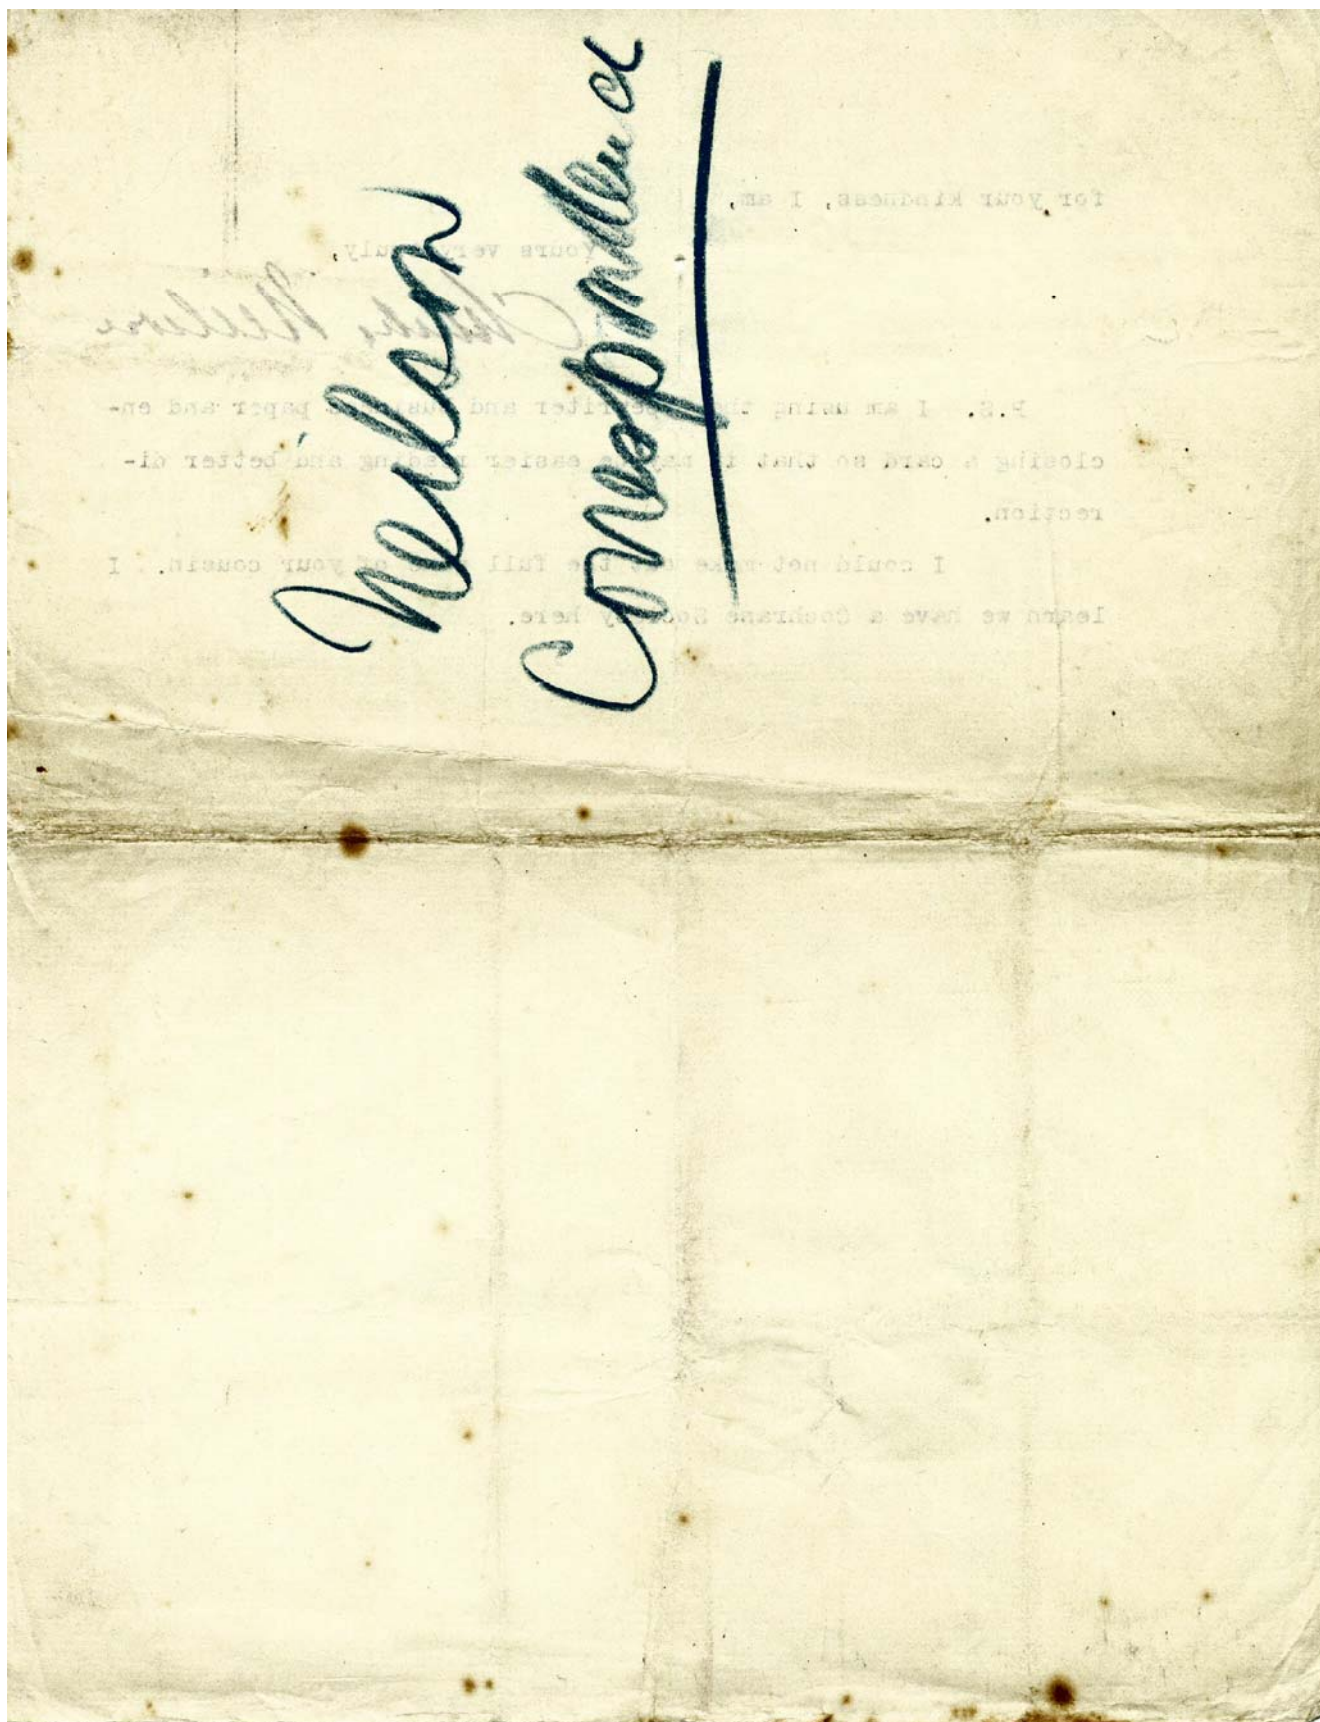 Neilson
Correspondence
for your kindness, I am,
Yours very truly,
Neilson
P.S. I am using the typewriter and business paper and en-
closing a card so that it may be easier reading and better di-
rection.
I could not make out the full name of your cousin. I
learn we have a Cochrane Society here.